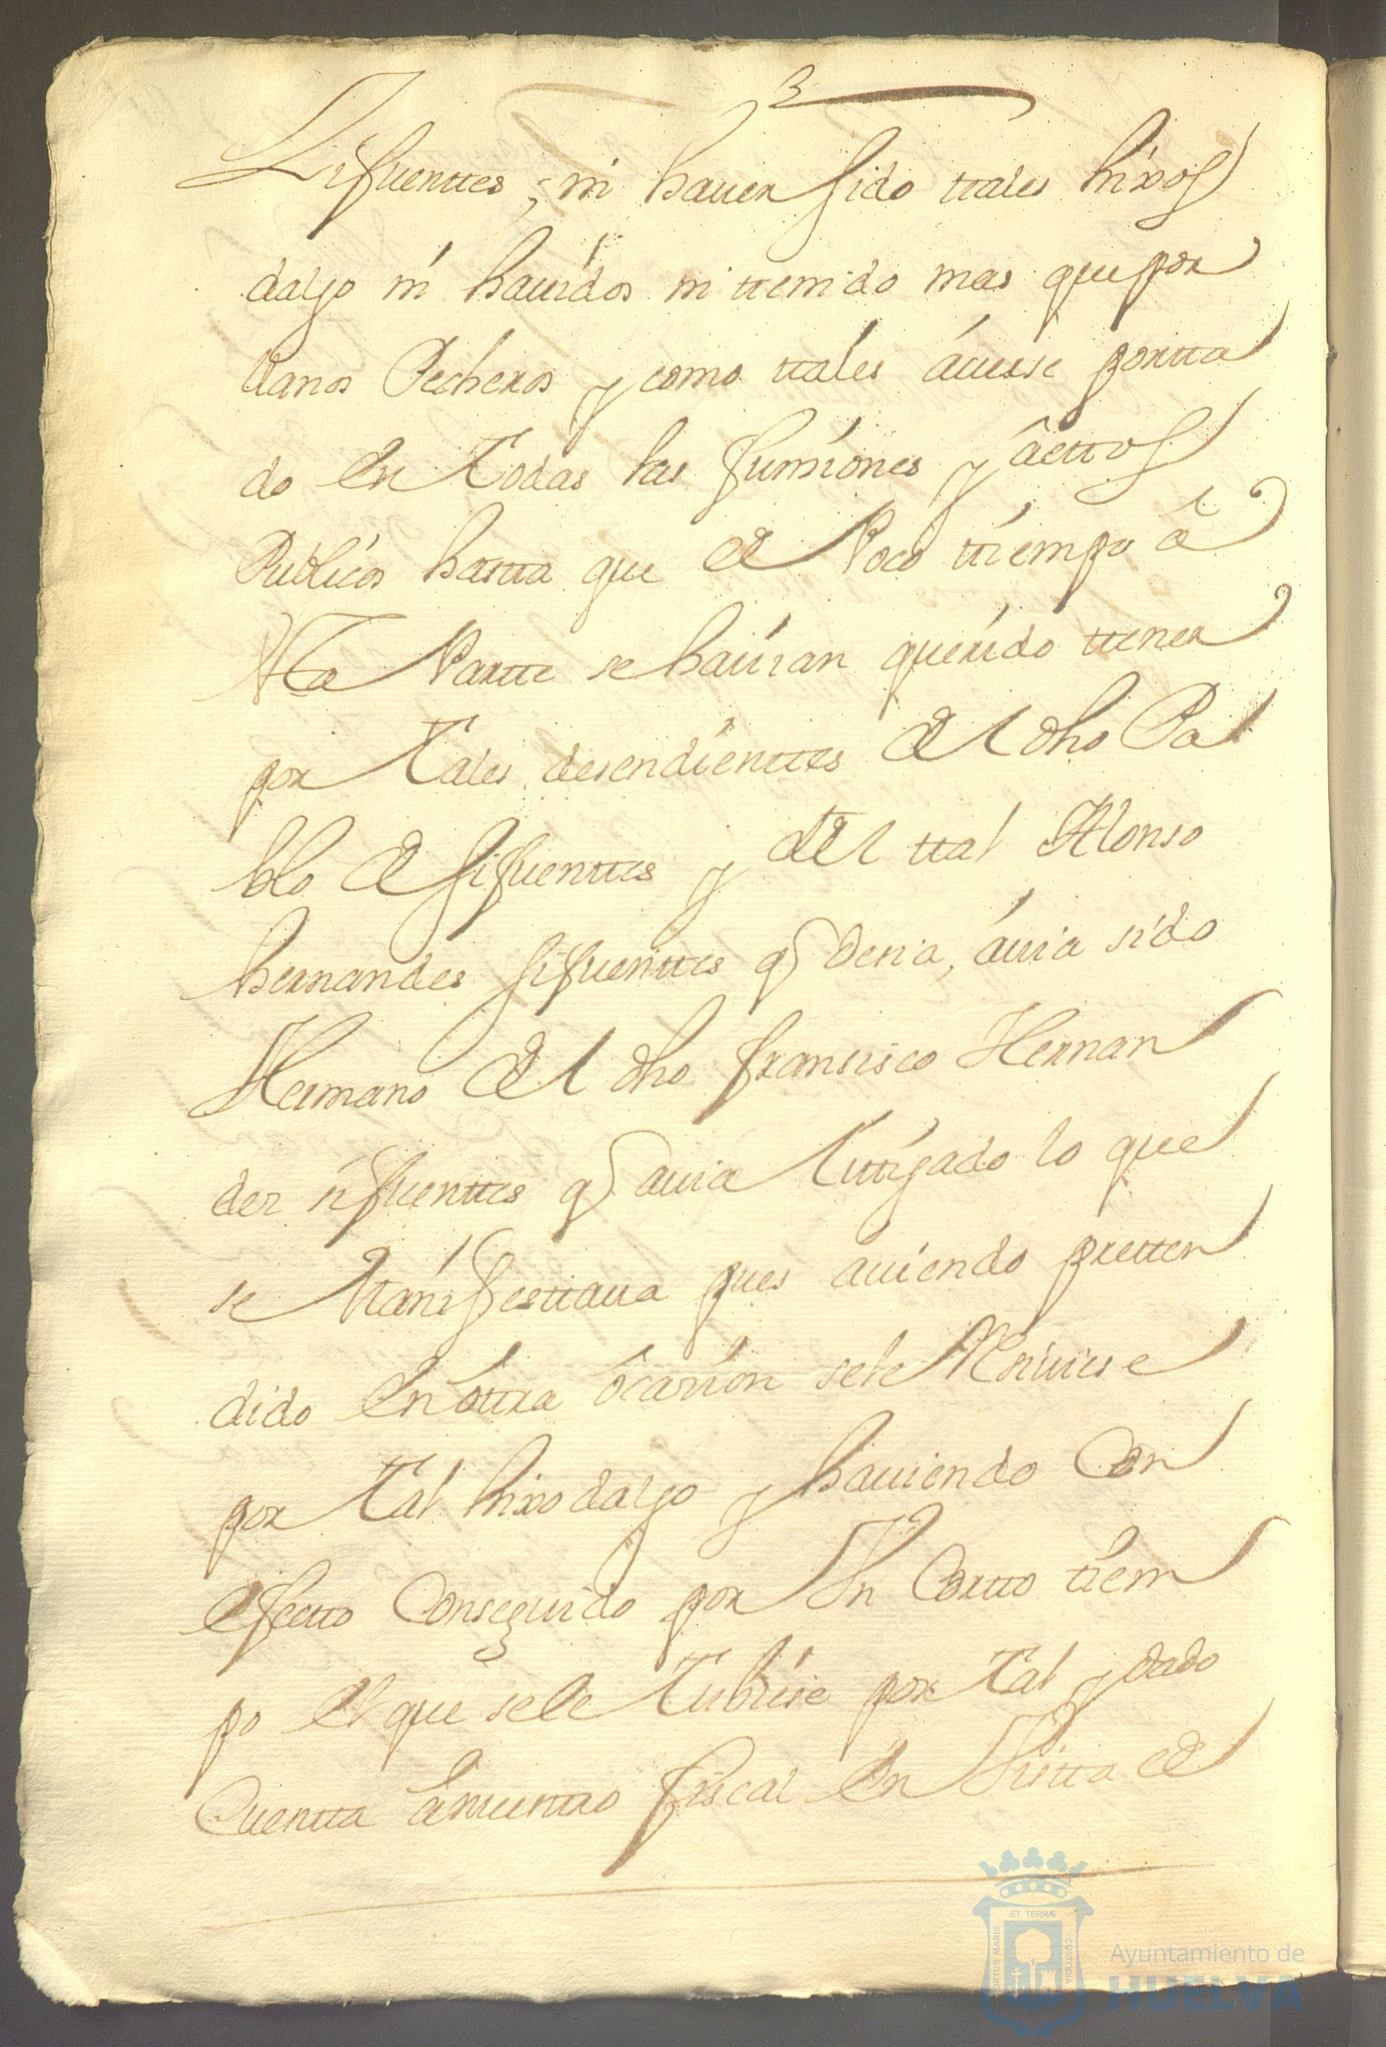 Sifuenttes, ni hauer sido ttales hixos
dalgo ni hauidos ni ttenido mas que por
llanos Pecheros y como ttales áuerse portta
do en Todas las funsiones y áettos
Publicos hastta que de Poco ttiempo â
estta Partte se hauian querido ttener
por Tales desendienttes del dho Pa
blo de sifuenttes y del ttal Alonso
hernandes sifuenttes q desia, áuia sido
Hermano del dho fransisco Hernan
des sifuenttes q auia Littigado lo que
se Manifesttaua pues auiendo pretten
dido en ottra ôcasión se le Resiuiese
por Tal hixodalgo y hauiendo Con
efectto Conseguido por Vn Cortto tiem
po el que se le Tubiese por Tal y dado
Cuentta a nuesttro fiscal en Vistta de
ET TERRÆ
PORTUS MARIS
CUSTODIA
Ayuntamiento de
HUELVA